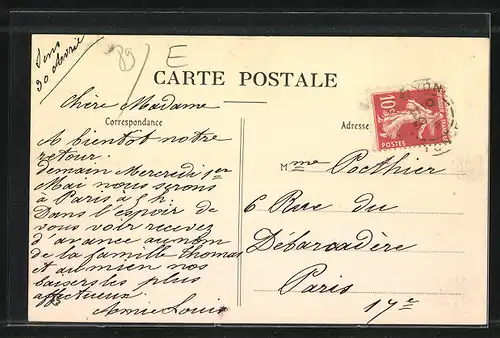 Sens
30 Avril
89/ E
CARTE POSTALE
Chère Madame
Correspondance
Adresse
A bientot notre
retour.
demain Mercredi 1er
Mai nous serons
à Paris à 5 h.
Dans l'espoir de
vous voir recevez
d'avance au nom
de la famille Thomas
et au mien nos
baisers les plus
affectueux.
Amie Louise
10c
POSTES
Mme Pothier
6 Rue du
Débarcadère
Paris
17e